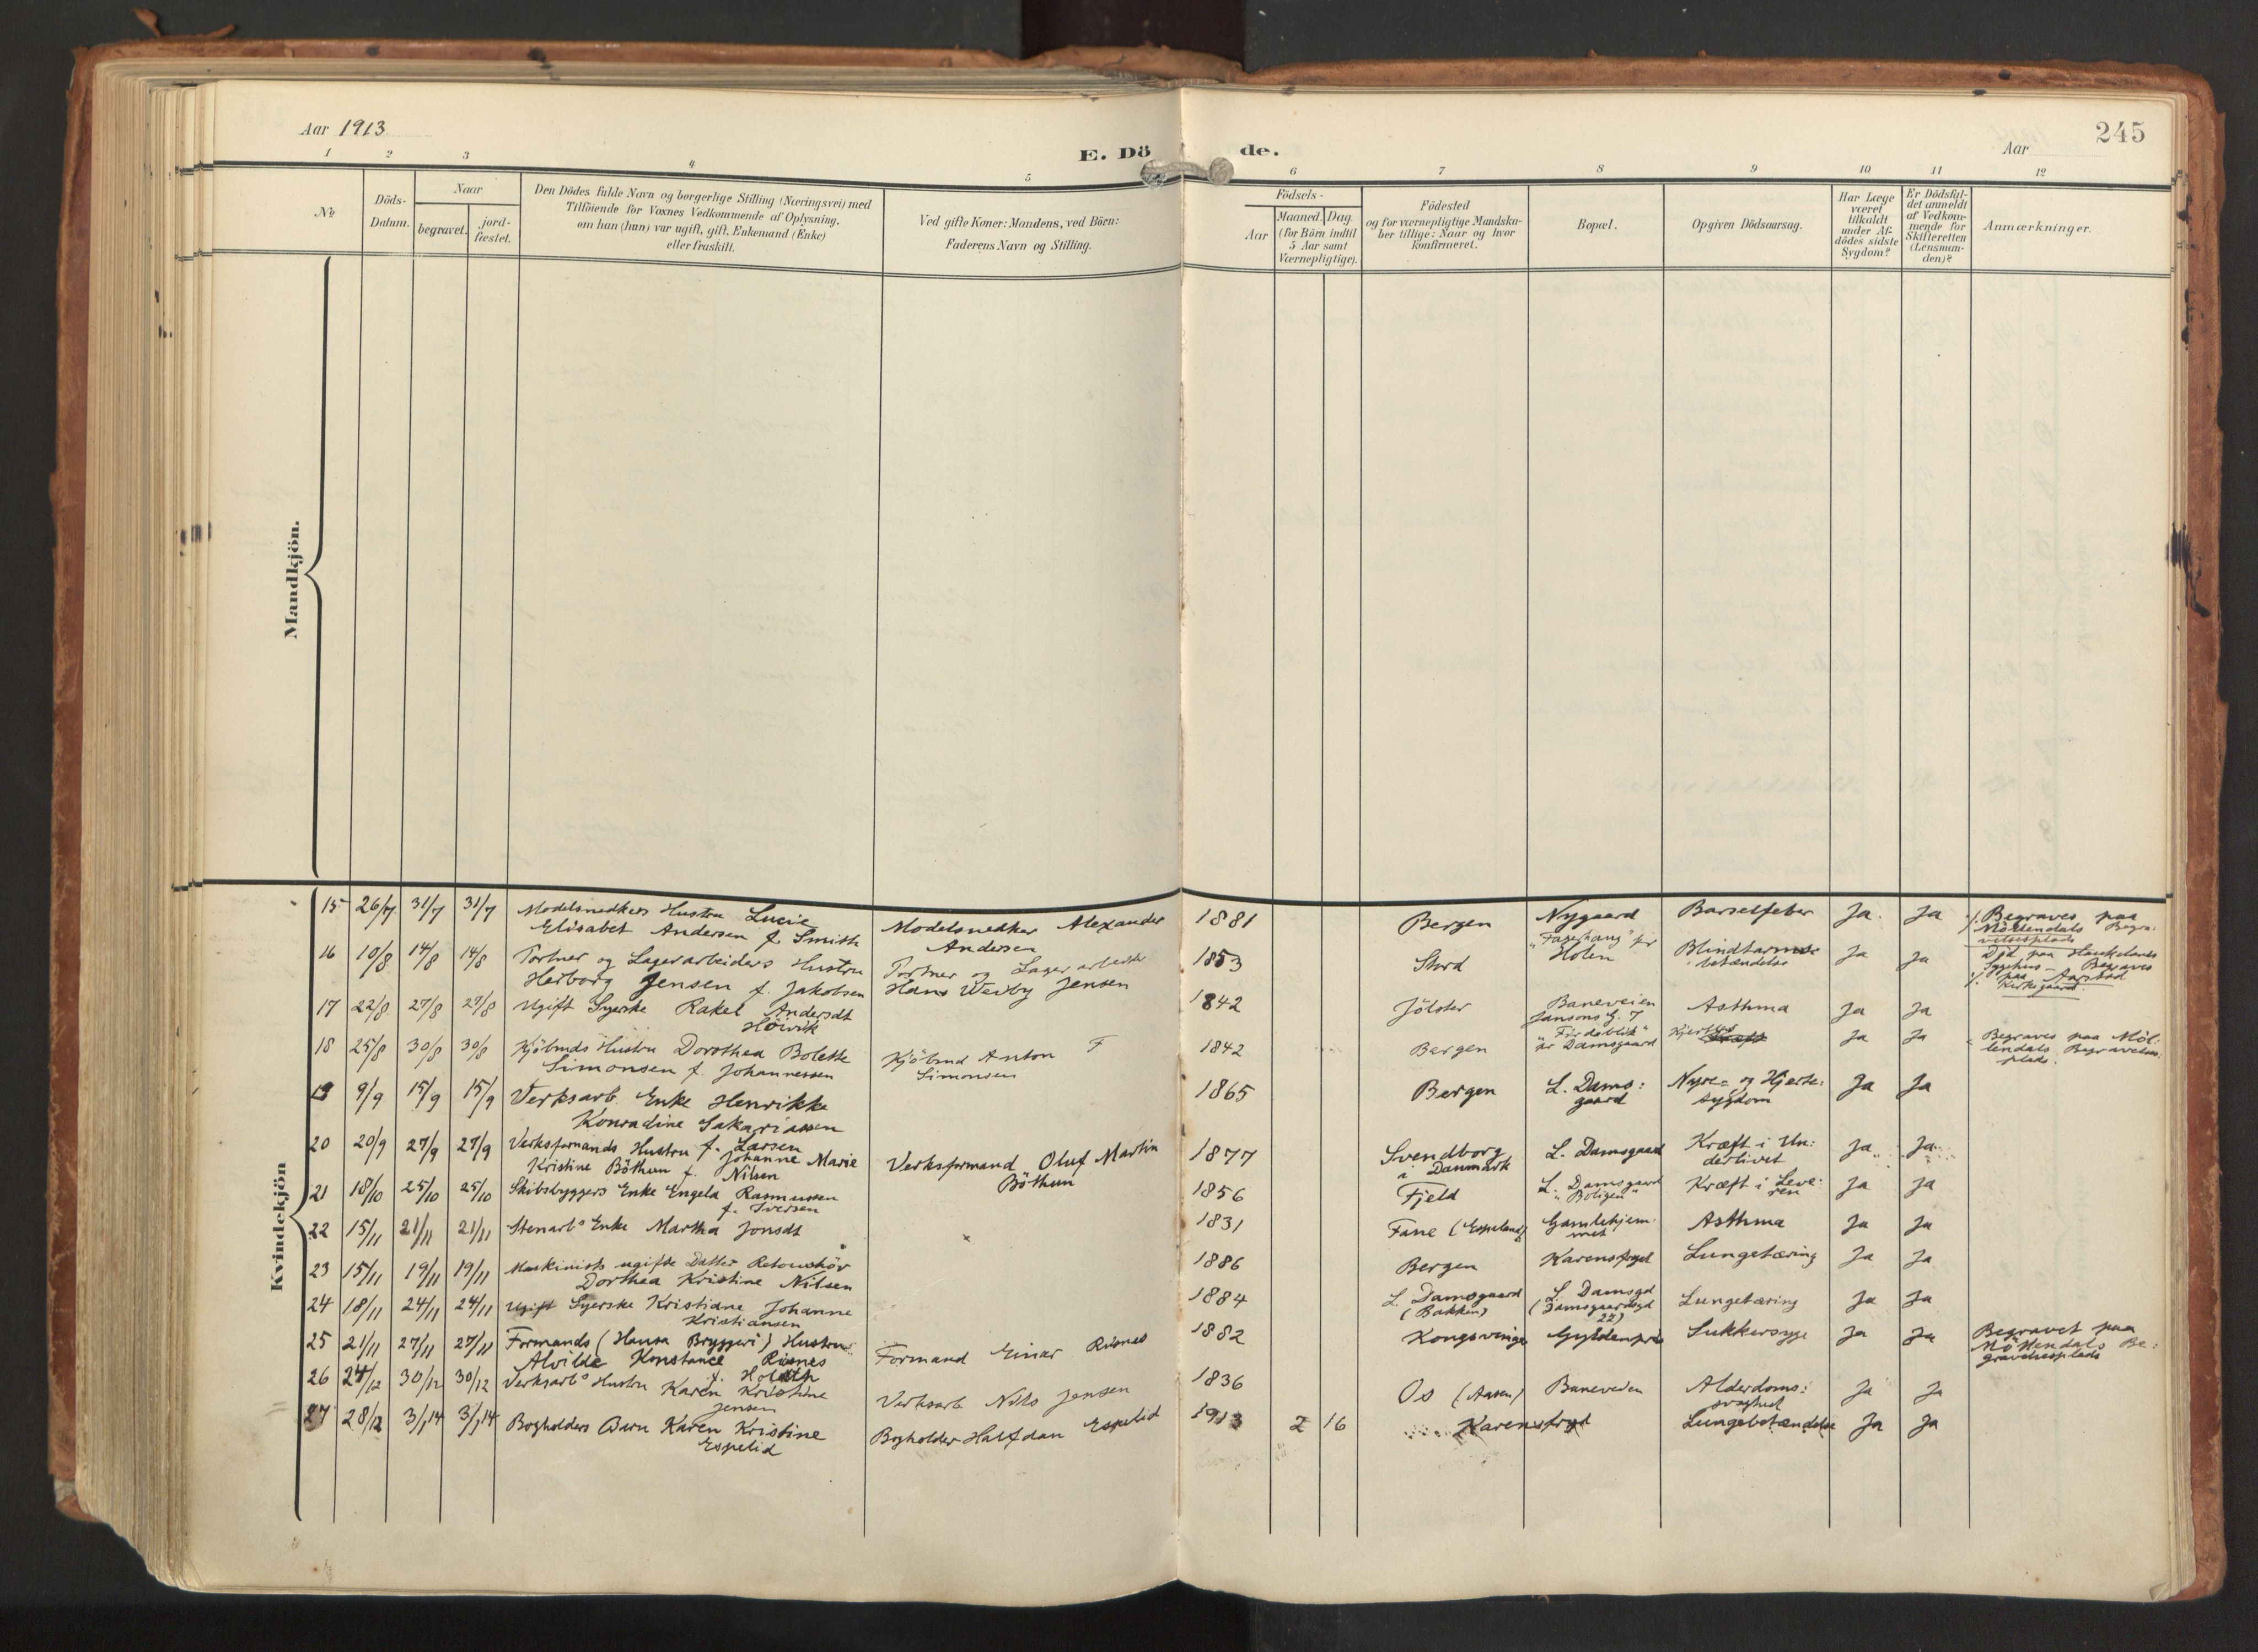 Aar 1913
E. Döde.
Aar
245
1 2 3 4 5 6 7 8 9 10 11 12
No
Döds-Datum.
Naar
begravet.
jord-fæstet.
Den Dödes fulde Navn og borgerlige Stilling (Næringsvei) med
Tilföiende for Voxnes Vedkommende af Oplysning,
om han (hun) var ugift, gift, Enkemand (Enke)
eller fraskilt.
Ved gifte Koner: Mandens, ved Börn:
Faderens Navn og Stilling.
Födsels-
Aar
Maaned. Dag.
(for Börn indtil
5 Aar samt
Værnepligtige).
Födested
og for værnepligtige Mandska-
ber tillige: Naar og hvor
konfirmeret.
Bopæl.
Opgiven Dödsaarsag.
Har Læge
været
tilkaldt
under Af-
dödes sidste
Sygdom?
Er Dödsfal-
det anmeldt
af Vedkom-
mende for
Skifteretten
(Lensman-
den)?
Anmærkninger.
Mandkjön.
Kvindekjön
15 26/7 31/7 31/7 Modelsnedkers Hustru Lucie
Elisabet Andersen f. Smith
Modelsnedker Alexander
Andersen
1881 Bergen Nygaard Barselfeber Ja Ja
Begraves paa
Möllendals Begra:
velsesplads
16 10/8 14/8 14/8 Portner og Lagerarbeiders Hustru
Herborg Jensen f. Jakobsen
Portner og Lagerarbeider
Hans Werby Jensen
1853 Stord
Holen
Blindtarms-
betændelse
Ja Ja
Död paa Haukelands
Sygehus - Begraves
paa Aarstad
Kirkegaard.
17 22/8 27/8 27/8 Ugift Syerske Rakel Andersdt
Hövik
1842 Jölster
Baneveien
Jansons G. 7
Asthma Ja Ja
18 25/8 30/8 30/8 Kjöbmds Hustru Dorothea Bolette
Simonsen f. Johannessen
Kjöbmd Anton F
Simonsen
1842 Bergen
pr Damsgaard
Ja Ja
Begraves paa Möl-
lendals Begravelses-
plads.
19 9/9 15/9 15/9 Verksarb. Enke Henrikke
Konradine Sakariassen
f. Larsen
1865 Bergen
L. Dams:
gaard
Nyre- og Hjerte:
sygdom
Ja Ja
20 20/9 27/9 27/9 Verksformands Hustru Johanne Marie
Kristine Böthun f. Nilsen
Verksformand Oluf Martin
Böthun
1877 Svendborg
i Danmark
L. Damsgaard
Kræft i Un:
derlivet
Ja Ja
21 18/10 25/10 25/10 Skibsbyggers Enke Engela Rasmussen
f. Iversen
1856 Fjeld
L. Damsgaard
"Boligen"
Kræft i Leve:
ren
Ja Ja
22 15/11 21/11 21/11 Stenarbs Enke Martha Jonsdt
1831 Fane (Espeland)
Gamlehjem-
met
Asthma Ja Ja
23 15/11 19/11 19/11 Maskinists ugifte Datter
Dorthea Kristine Nilsen
1886 Bergen Karensfryd Lungetæring Ja Ja
24 18/11 24/11 24/11 Ugift Syerske Kristiane Johanne
Kristiansen
1884 L. Damsgaard
(Bakken)
L. Damsgd
(Damsgaardsgd
22)
Lungetæring Ja Ja
25 21/11 27/11 27/11 Formands (Hansa Bryggeri) Hustru
Alvilde Konstance Risnes
Formand Einar Risnes
1882 Kongsvinger Gyldenpris Sukkersyge Ja Ja
Begravet paa
Möllendals Be:
gravelsesplads
26 24/12 30/12 30/12 Verksarbs Hustru Karen Kristine
Jensen
Verksarb Nils Jensen
1836 Os (Aasen) Baneveien
Alderdoms:
svaghed
Ja Ja
27 28/12 3/1 14 3/1 14 Bogholders Barn Karen Kristine
Espelid
Bogholder Halfdan Espelid
1913 2 16 Karensfryd Lungebetændelse Ja Ja